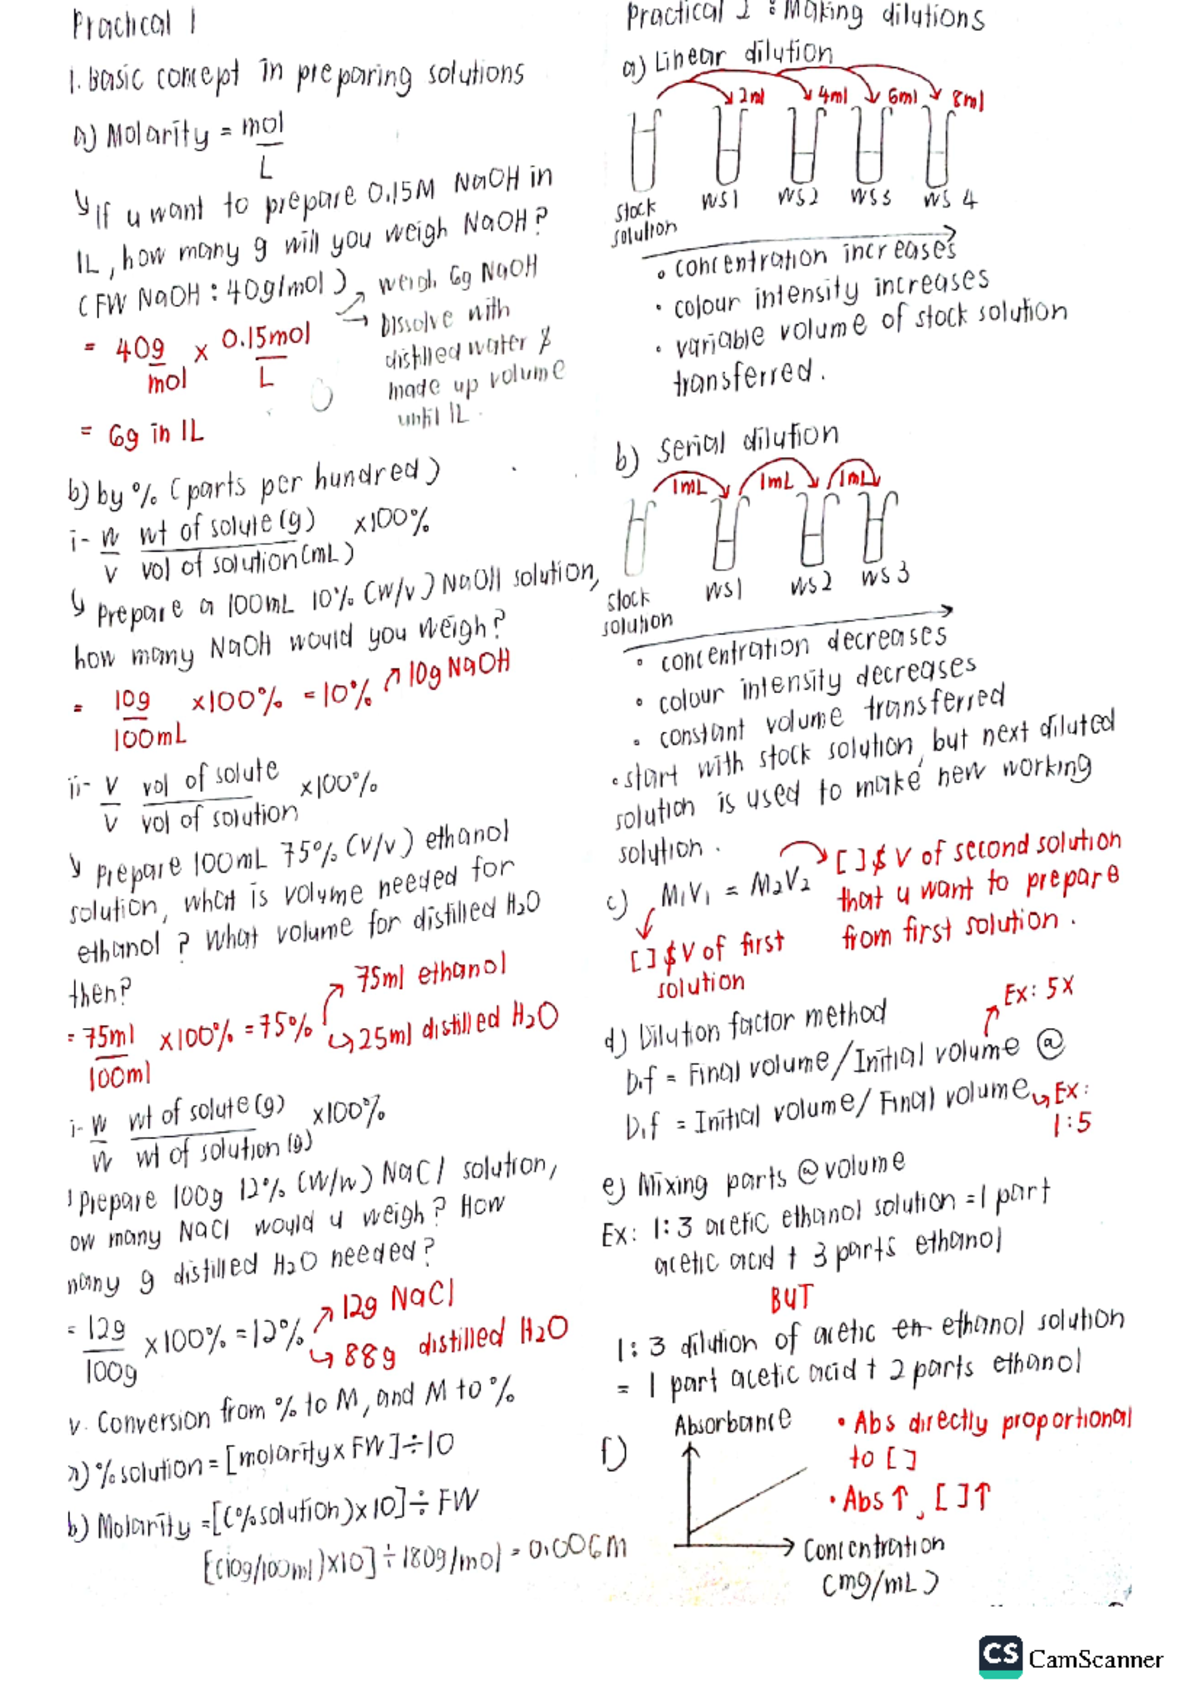 Practical 1
1. Basic concept in preparing solutions
a) Molarity = mol
L
↳ If u want to prepare 0.15M NaOH in
1L, how many g will you weigh NaOH?
(FW NaOH : 40g/mol)
→ weigh 6g NaOH
→ Dissolve with
distilled water &
made up volume
until 1L.
= 40g x 0.15mol
mol L
= 6g in 1L
b) by % (parts per hundred)
i- w wt of solute (g) x100%
v vol of solution (mL)
↳ Prepare a 100mL 10% (w/v) NaOH solution,
how many NaOH would you weigh?
= 10g x100% = 10% ↗ 10g NaOH
100mL
ii- v vol of solute x100%
v vol of solution
↳ prepare 100mL 75% (v/v) ethanol
solution, what is volume needed for
ethanol? What volume for distilled H2O
then?
= 75ml x100% = 75%
100ml
↗ 75ml ethanol
↳ 25ml distilled H2O
i- w wt of solute (g) x100%
w wt of solution (g)
Prepare 100g 12% (w/w) NaCl solution,
ow many NaCl would u weigh? How
many g distilled H2O needed?
= 12g x100% = 12%
100g
↗ 12g NaCl
↳ 88g distilled H2O
v. Conversion from % to M, and M to %
a) % solution = [molarity x FW] ÷ 10
b) Molarity = [(% solution) x 10] ÷ FW
[(10g/100ml) x10] ÷ 180g/mol = 0.006M
Practical 2 : Making dilutions
a) Linear dilution
2ml 4ml 6ml 8ml
stock
solution
WS1 WS2 WS3 WS 4
• concentration increases
• colour intensity increases
• variable volume of stock solution
transferred.
b) Serial dilution
1mL 1mL 1mL
stock
solution
WS1 WS2 WS3
• concentration decreases
• colour intensity decreases
• constant volume transferred
• start with stock solution, but next diluted
solution is used to make new working
solution.
c) M1V1 = M2V2
[ ] & V of second solution
that u want to prepare
from first solution.
[ ] & V of first
solution
d) Dilution factor method
Ex: 5X
D.f = Final volume / Initial volume @
D.f = Initial volume / Final volume ↳ Ex:
1:5
e) Mixing parts @ volume
Ex: 1:3 acetic ethanol solution = 1 part
acetic acid + 3 parts ethanol
BUT
1:3 dilution of acetic en ethanol solution
= 1 part acetic acid + 2 parts ethanol
f)
Absorbance
• Abs directly proportional
to [ ]
• Abs ↑, [ ] ↑
Concentration
(mg/mL)
CS CamScanner